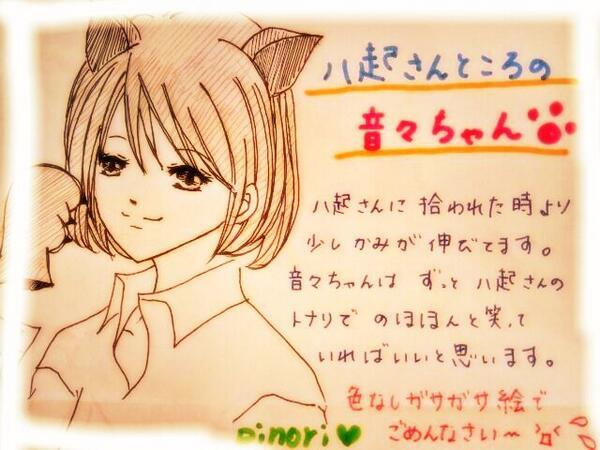 八起さんところの
音々ちゃん
八起さんに拾われた時より
少しかみが伸びてます。
音々ちゃんは ずっと八起さんの
トナリで のほほんと笑って
いればいいと思います。
色なしガサガサ絵で
ごめんなさい〜
pinori♥